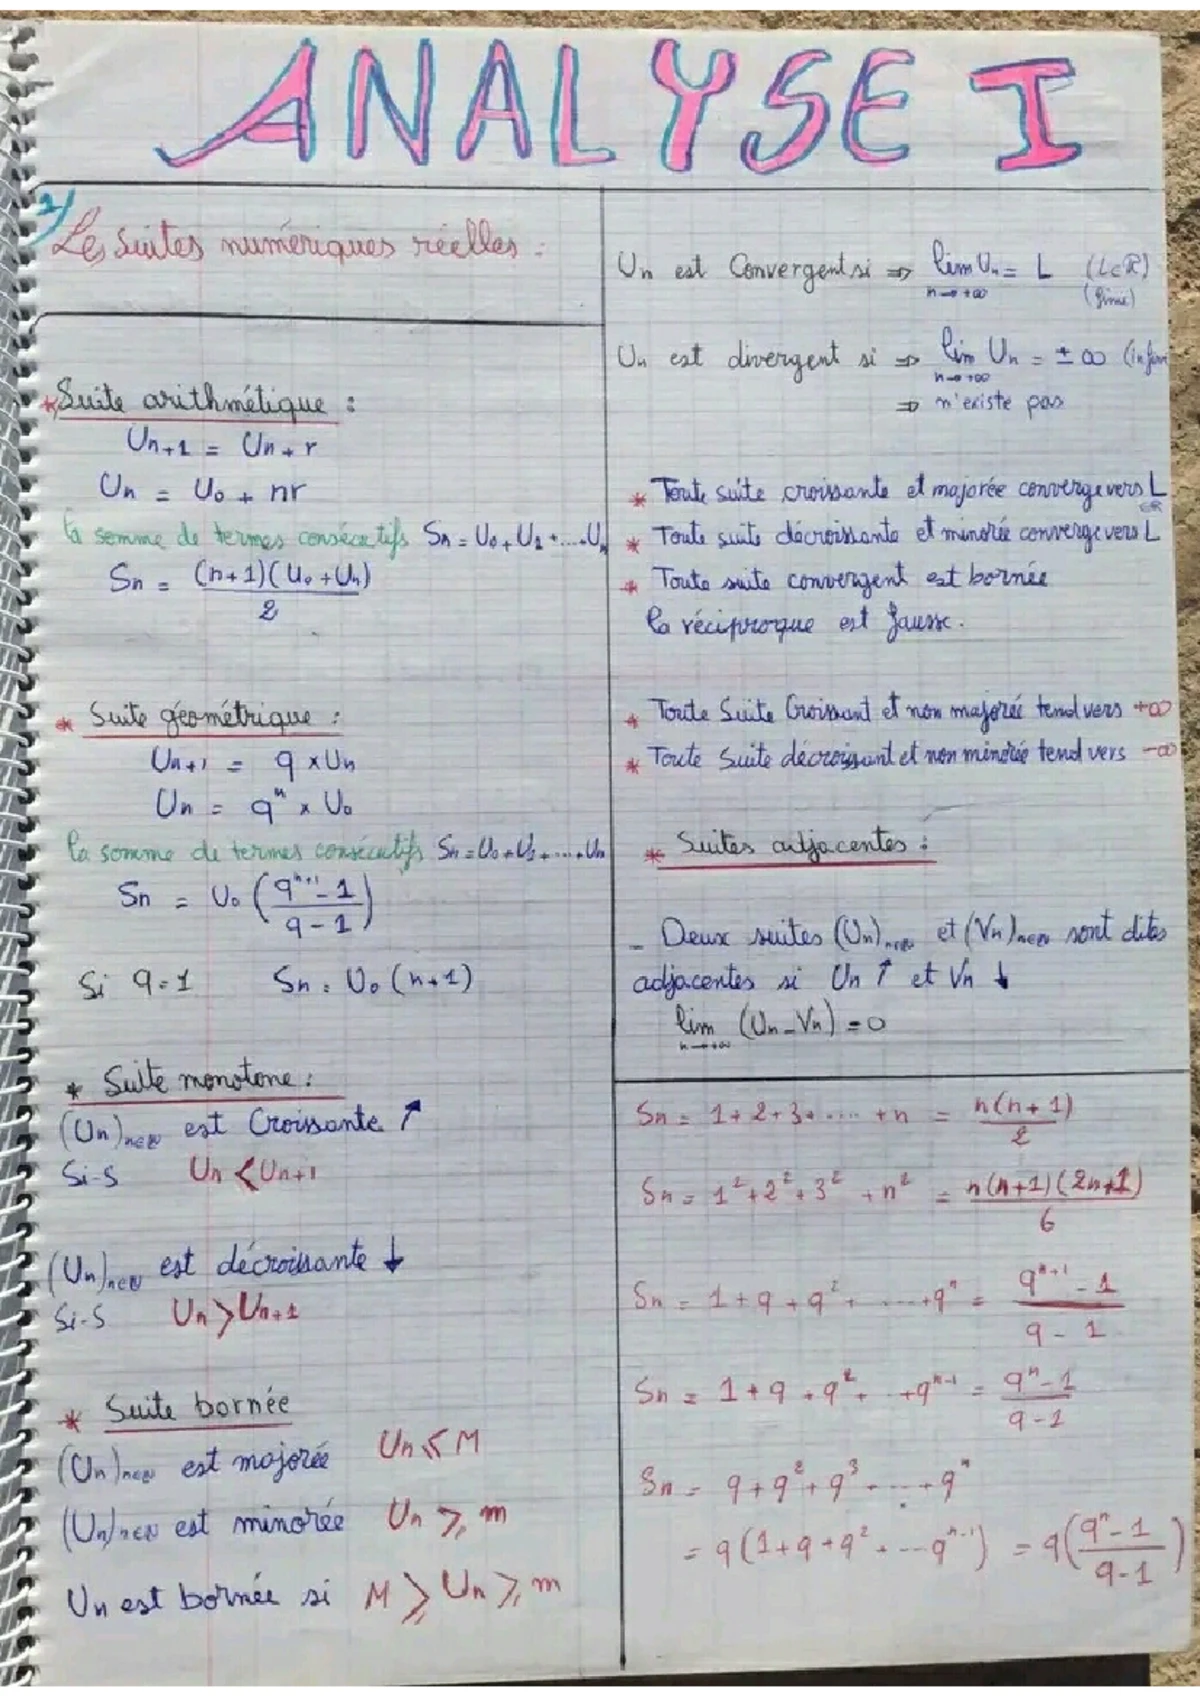 ANALYSE I
1)
Les Suites numériques réelles :
* Suite arithmétique :
Un+1 = Un + r
Un = U0 + nr
la somme de termes consécutifs Sn = U0 + U1 + .... Un
Sn = (n+1)(U0 + Un) / 2
* Suite géométrique :
Un+1 = q × Un
Un = q^n × U0
la somme de termes consécutifs Sn = U0 + U1 + .... + Un
Sn = U0 ( (q^(n+1) - 1) / (q - 1) )
Si q = 1 Sn = U0 (n+1)
* Suite monotone :
(Un)n∈N est Croissante ↑
Si-S Un < Un+1
(Un)n∈N est décroissante ↓
Si-S Un > Un+1
* Suite bornée
(Un)n∈N est majorée Un ≤ M
(Un)n∈N est minorée Un ≥ m
Un est bornée si M ≥ Un ≥ m
Un est Convergent si ⇒ lim n→+∞ Un = L (L∈R) (finie)
Un est divergent si ⇒ lim n→+∞ Un = ± ∞ (infini
⇒ n'existe pas
* Toute suite croissante et majorée converge vers L ∈R
* Toute suite décroissante et minorée converge vers L
* Toute suite convergent est bornée
la réciproque est fausse.
* Toute Suite Croissant et non majorée tend vers +∞
* Toute Suite décroissant et non minorée tend vers -∞
* Suites adjacentes :
- Deux suites (Un)n∈N et (Vn)n∈N sont dites
adjacentes si Un ↑ et Vn ↓
lim n→+∞ (Un - Vn) = 0
Sn = 1 + 2 + 3 + ..... + n = n(n+1) / 2
Sn = 1² + 2² + 3² + n² = n(n+1)(2n+1) / 6
Sn = 1 + q + q² + ..... + q^n = (q^(n+1) - 1) / (q - 1)
Sn = 1 + q + q² + .. + q^(n-1) = (q^n - 1) / (q - 1)
Sn = q + q² + q³ + ... + q^n
= q (1 + q + q² + ... q^(n-1)) = q ( (q^n - 1) / (q - 1) )